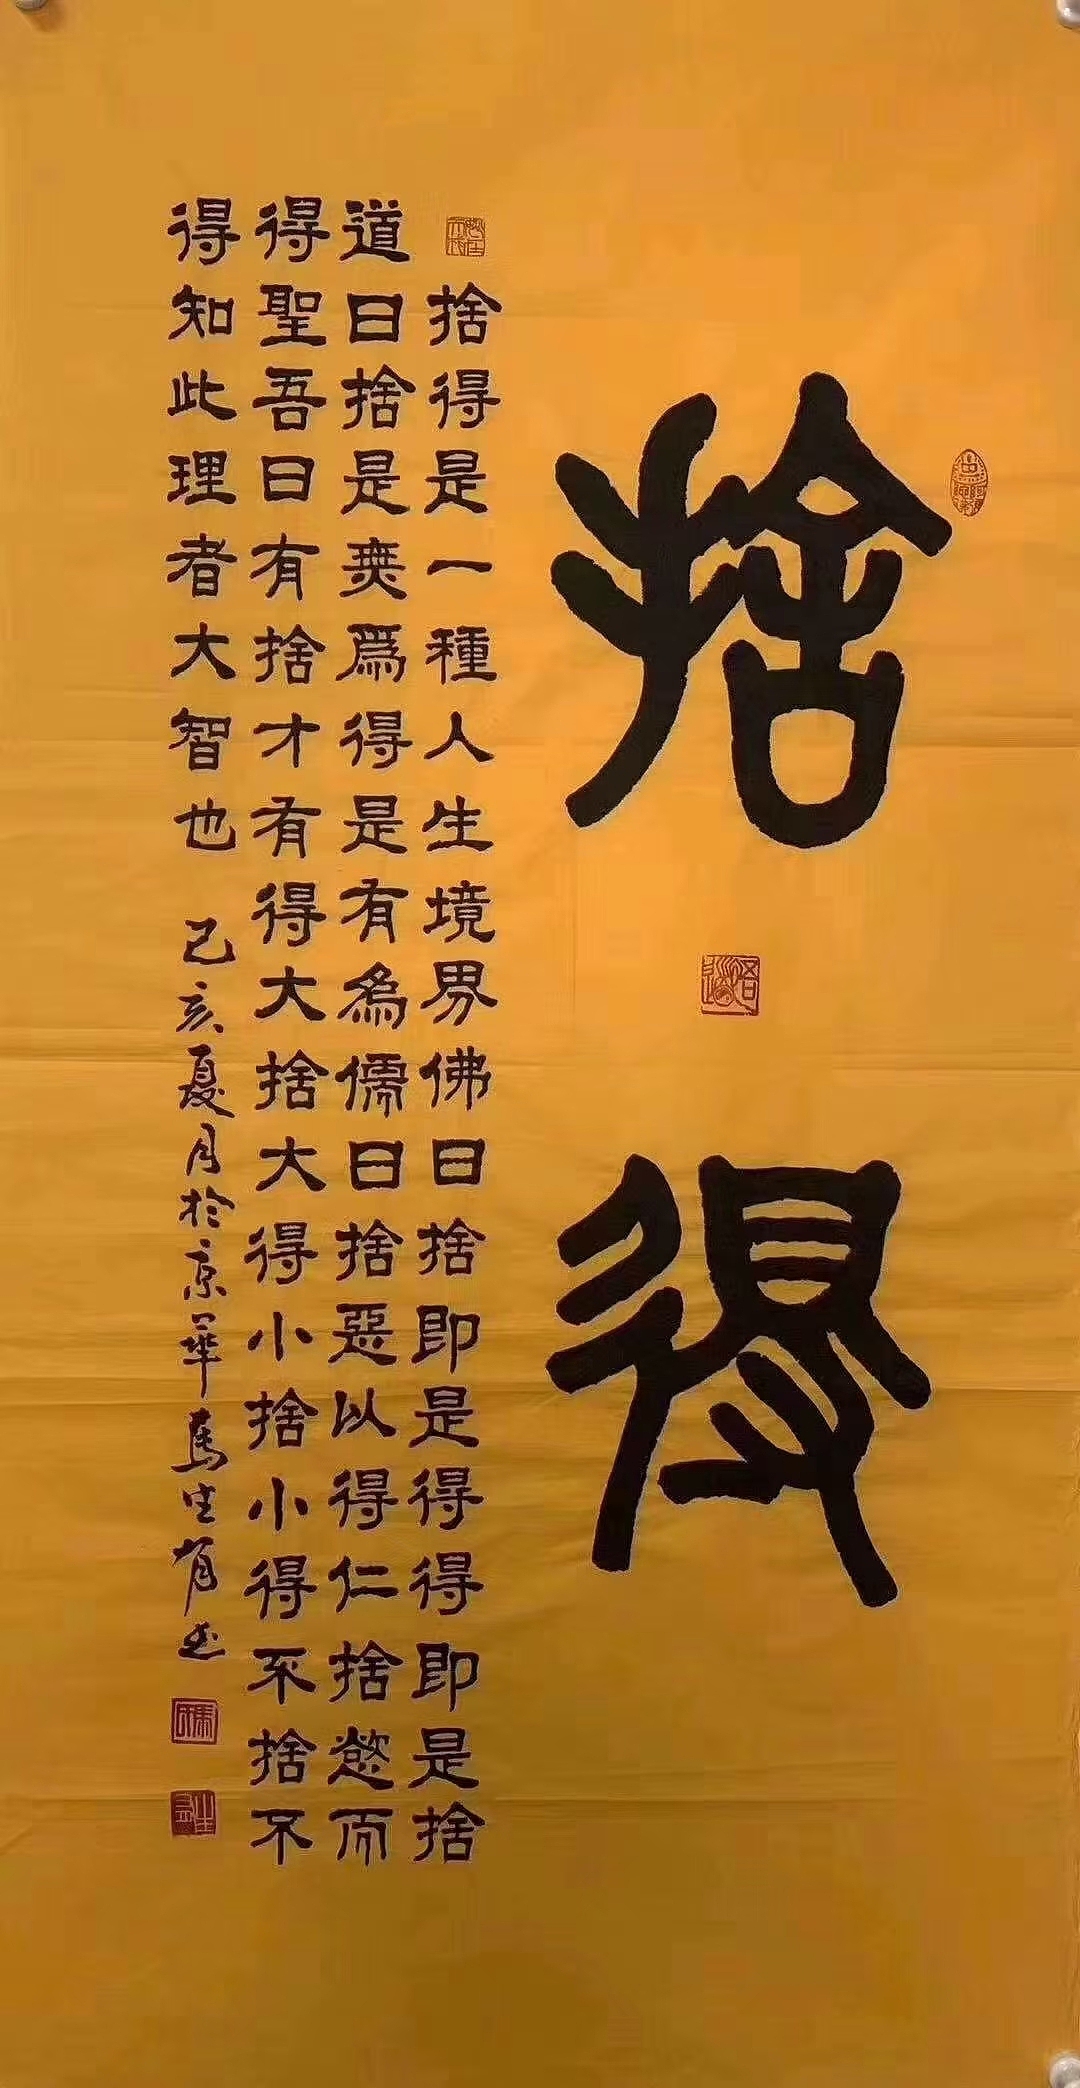 捨得
捨得是一種人生境界佛曰捨即是得得即是捨
道曰捨是無爲得是有為儒曰捨惡以得仁捨慾而
得聖吾曰有捨才有得大捨大得小捨小得不捨不
得知此理者大智也
己亥夏月於京華馬生肖书
悟道